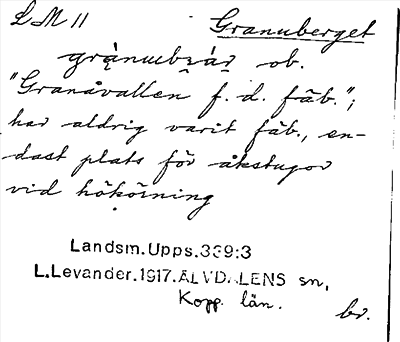 LM 11 Granuberget
grànubε̣àr̥ ob.
"Granåvallen f. d. fäb.";
har aldrig varit fäb., en-
dast plats för åkstugor
vid hökörning
Landsm.Upps.339:3
L.Levander.1917.ÄLVDALENS sn,
Kopp. län.
br.